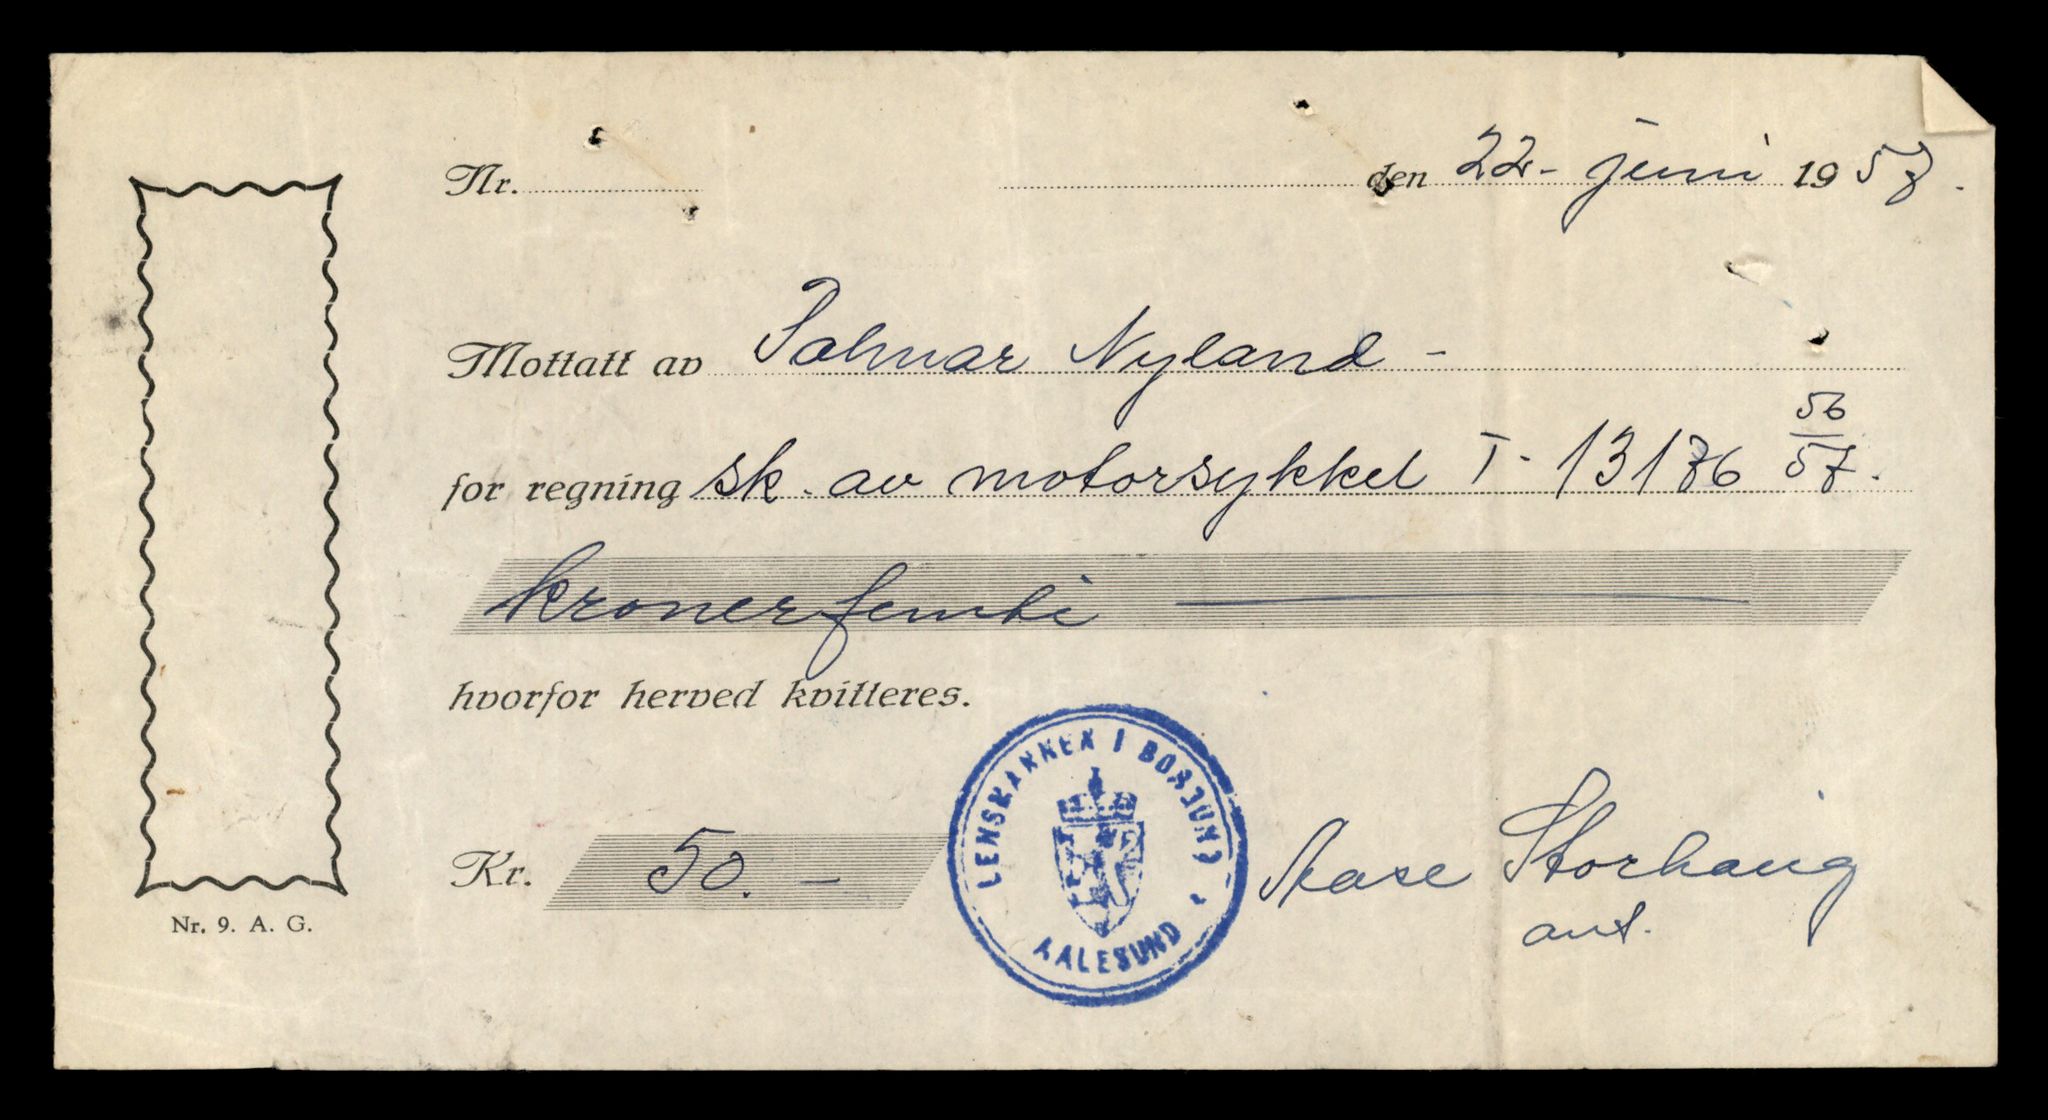 Nr. den 22- juni 1957.
Mottatt av Palmar Nyland -
for regning sk. av motorsykkel T- 13176 56/57.
kroner femti
hvorfor herved kvitteres.
Kr. 50.-
LENSMANNEN I BORGUND
AALESUND
Aase Storhaug
ant.
Nr. 9. A. G.